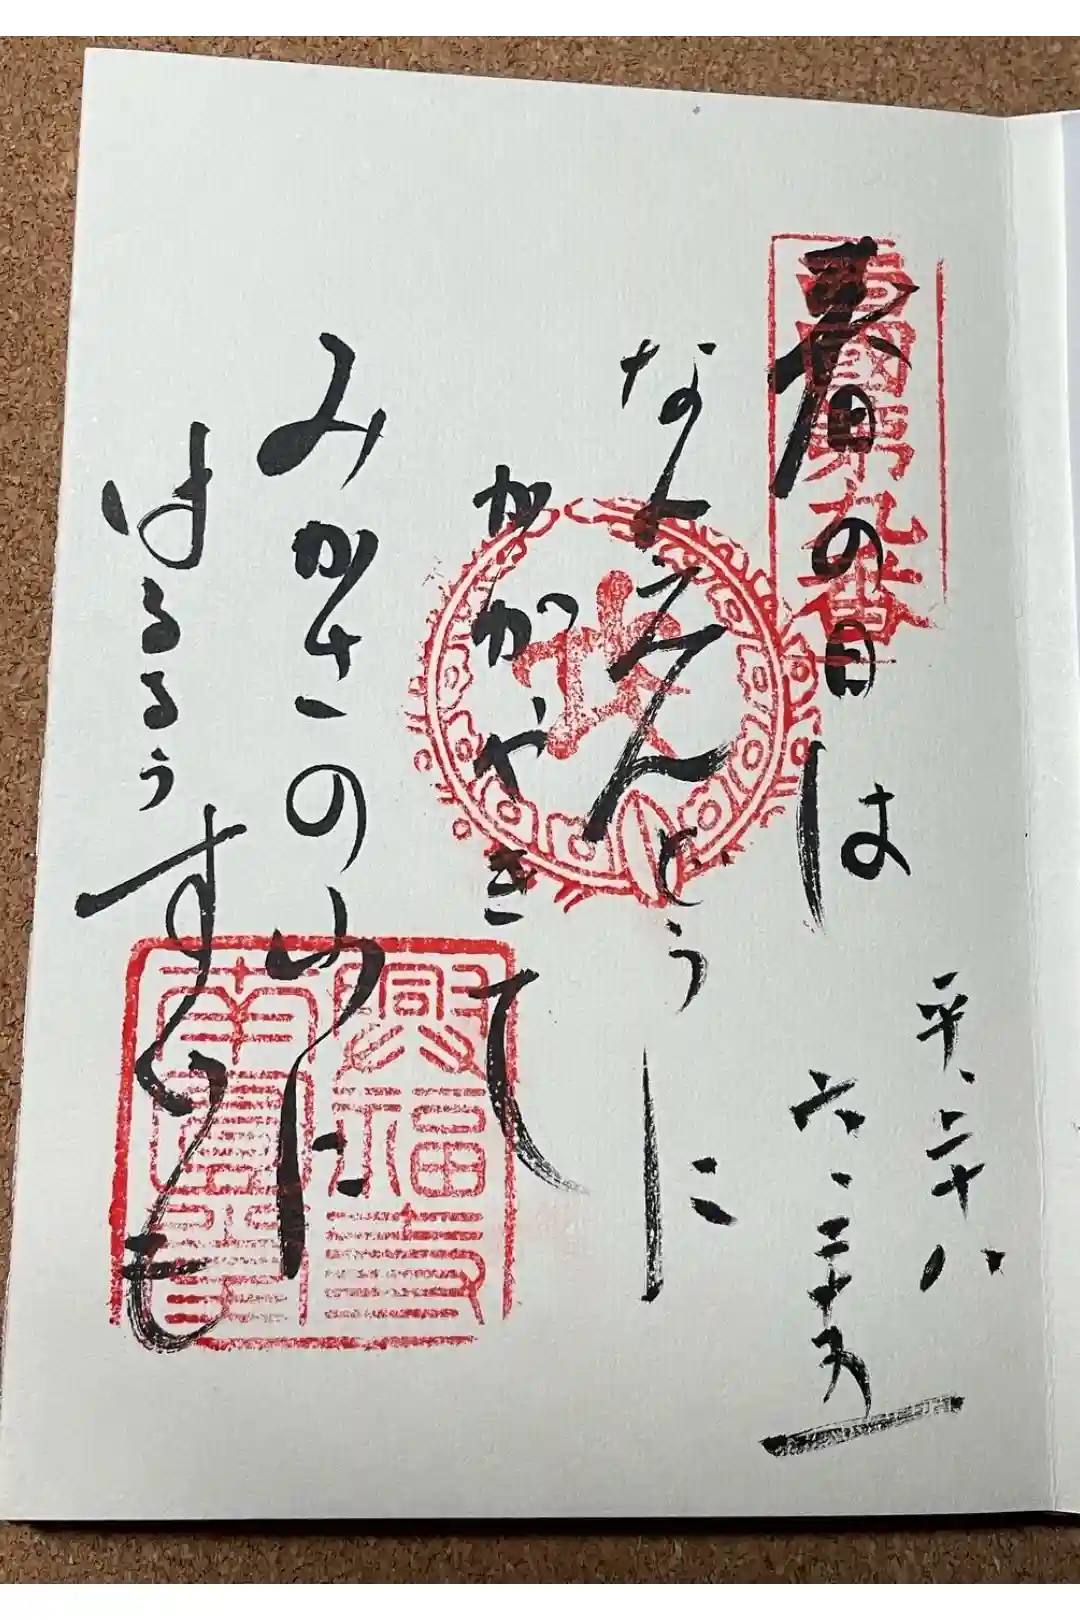 西國第九番
春の日は
なんえんどうに
かがやきて
みかさの山に
はるるうすくも
平、二十八
六、二十五
興福寺
南圓堂